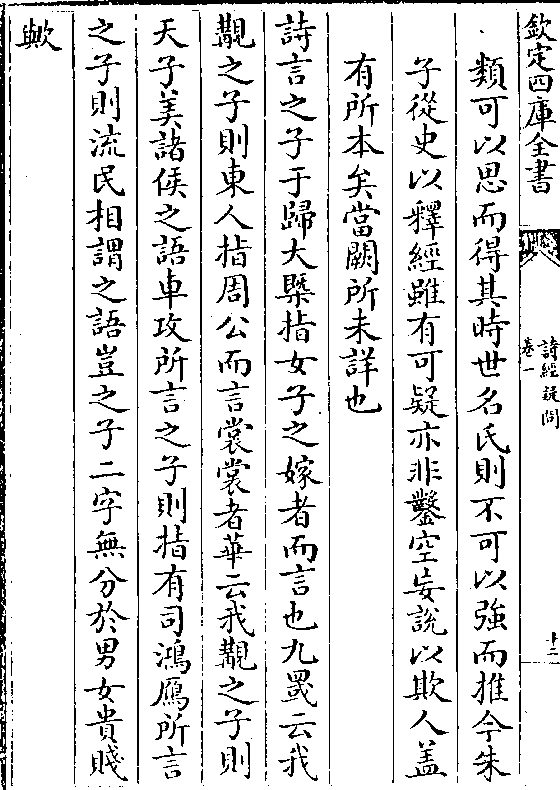 欽定四庫全書
詩經疑問
卷一
十二
類可以思而得其時世名氏則不可以強而推今朱
子從史以釋經雖有可疑亦非鑿空妄說以欺人盖
有所本矣當闕所未詳也
詩言之子于歸大槩指女子之嫁者而言也九罭云我
覯之子則東人指周公而言裳裳者華云我覯之子則
天子美諸侯之語車攻所言之子則指有司鴻鴈所言
之子則流民相謂之語豈之子二字無分於男女貴賤
歟